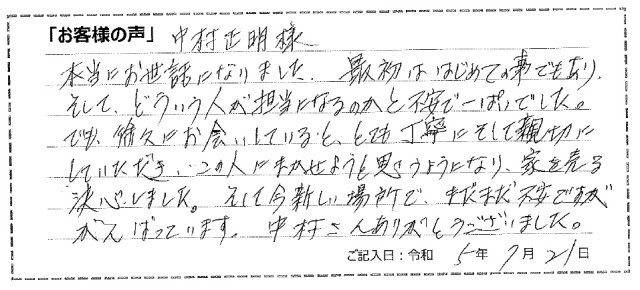 「お客様の声」 中村正明様
本当にお世話になりました、最初ははじめての事でもあり、
そして、どういう人が担当になるのかと不安で一ぱいでした。
でも、何人にお会いしていると、とても丁寧にそして親切に
していただき、この人にまかせようと思うようになり、家を売る
決心しました。そして今新しい場所で、まだまだ不安ですが
がんばっています。中村さんありがとうございました。
ご記入日：令和 5年 7月 21日